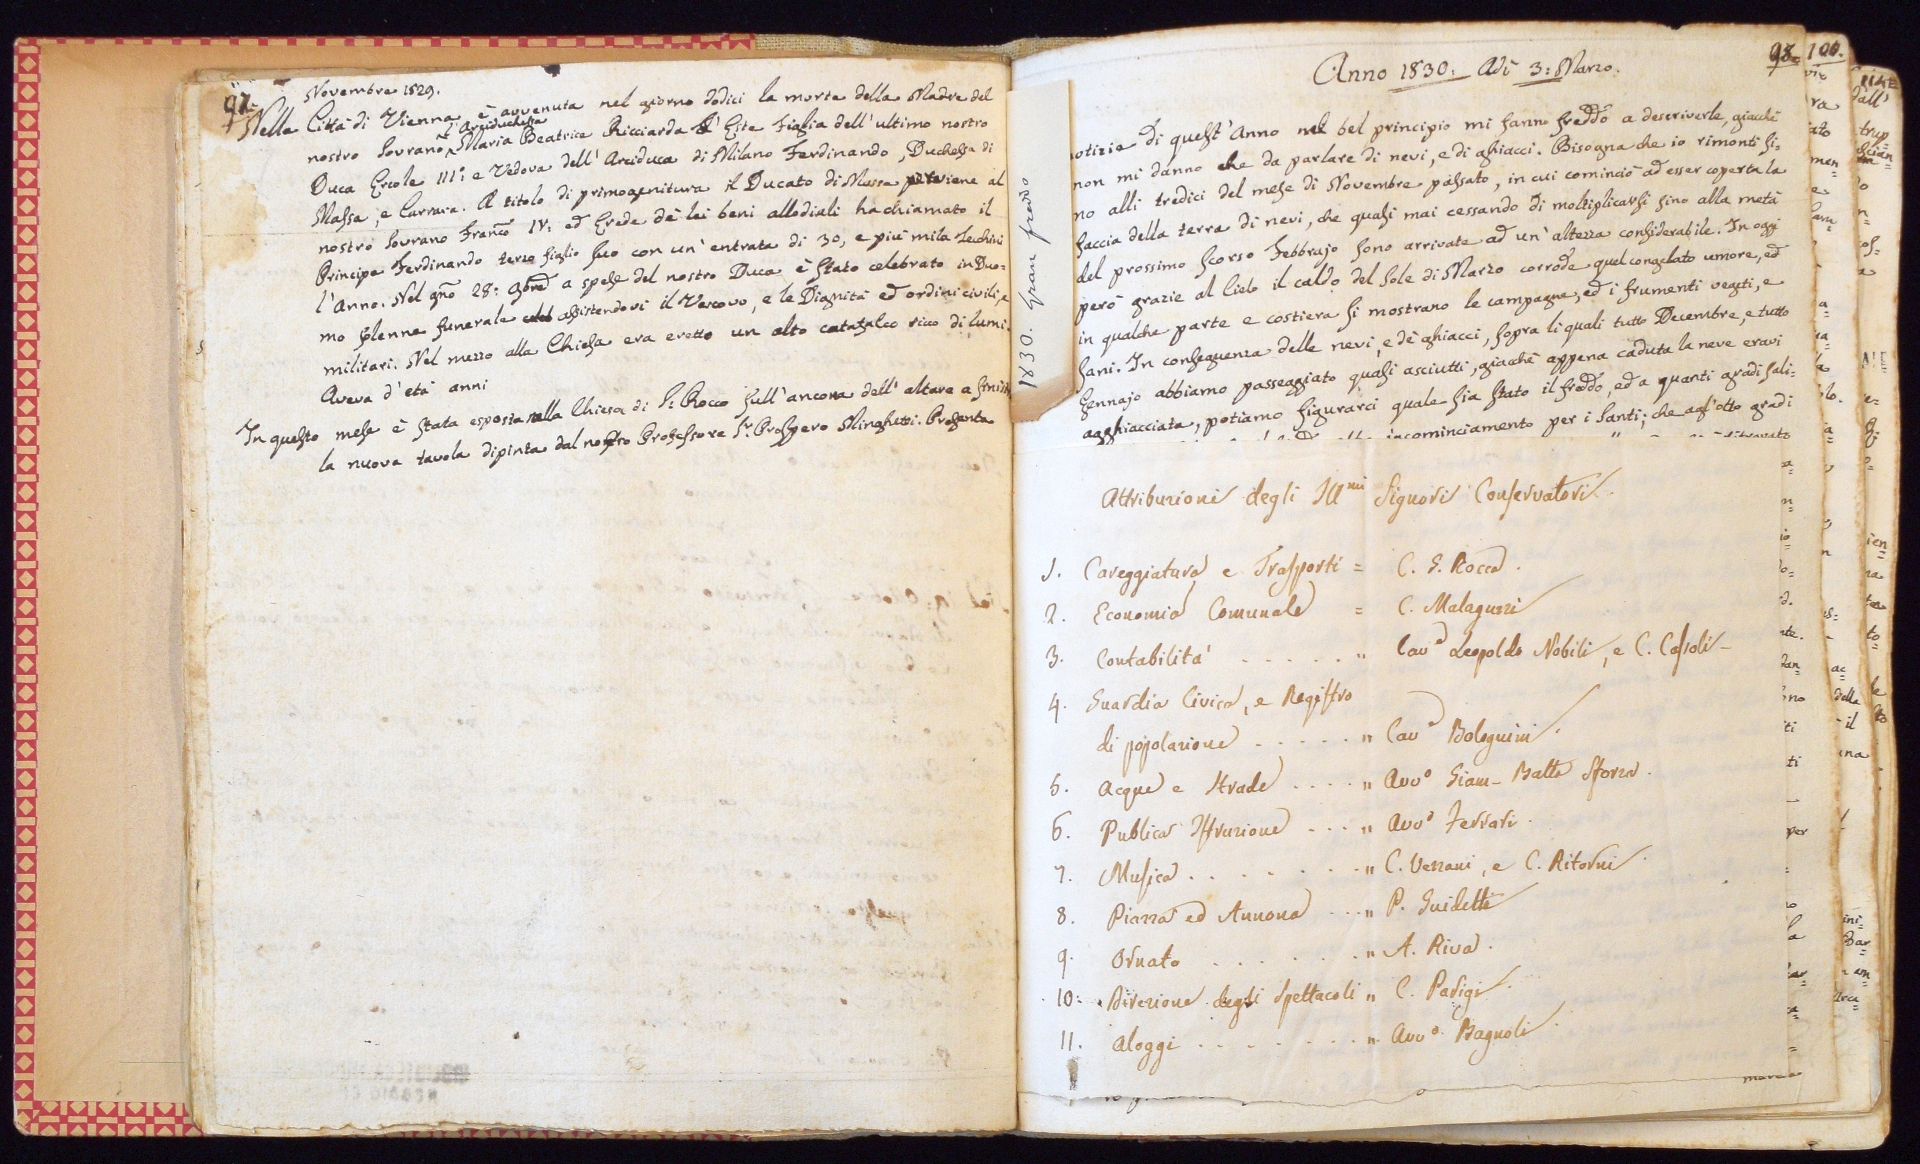 97.
Novembre 1829.
Nella Città di Vienna è avvenuta nel giorno dodici la morte della Madre del
nostro Sovrano l'Arciduchessa Maria Beatrice Ricciarda d'Este Figlia dell'ultimo nostro
Duca Ercole III: e Vedova dell'Arciduca di Milano Ferdinando, Duchessa di
Massa, e Carrara. A titolo di primogenitura il Ducato di Massa perviene al
nostro Sovrano Franc.o IV: ed Erede dè lei beni allodiali ha chiamato il
Principe Ferdinando terzo figlio suo con un'entrata di 30, e più mila Zecchini
l'Anno. Nel gno 28: 9bre a spese del nostro Duca è stato celebrato in Duo=
mo solenne funerale assistendovi il Vescovo, e le Dignità ed ordini civili, e
militari. Nel mezzo alla Chiesa era eretto un alto catafalco ricco di lumi.
Aveva d'età anni
In questo mese è stata esposta nella Chiesa di S. Rocco sull'ancona dell'altare a
la nuova tavola dipinta dal nostro Professore Sr. Prospero Minghetti. Presenta
98. 100.
Anno 1830: Adì 3: Marzo.
1830. Gran freddo
notizie di quest'Anno nel bel principio mi fanno freddo a descriverle, giacchè
non mi danno che da parlare di nevi, e di ghiacci. Bisogna che io rimonti fi-
no alli tredici del mese di Novembre passato, in cui cominciò ad esser coperta la
faccia della terra di nevi, che quasi mai cessando di moltiplicarsi fino alla metà
del prossimo scorso Febbrajo sono arrivate ad un'altezza considerabile. In oggi
però grazie al Cielo il caldo del Sole di Marzo corrode quel congelato umore, ed
in qualche parte e costiera si mostrano le campagne, ed i frumenti vegeti, e
sani. In conseguenza delle nevi, e dè ghiacci, sopra li quali tutto Decembre, e tutto
Gennajo abbiamo passeggiato quasi asciutti, giacchè appena caduta la neve eravi
agghiacciata, potiamo figurarci quale sia stato il freddo, ed a quanti gradi sali-
incominciamento per i Santi; che agl'otto gradi
Attribuzioni degli Ill.mi Signori Conservatori.
1. Careggiatura e Trasporti = C. S. Rocca.
2. Economia Comunale = C. Malaguzzi
3. Contabilità . . . . . " Cav.e Leopoldo Nobili, e C. Cassoli -
4. Guardia Civica, e Registro
di popolazione . . . . . " Cav.e Bolognini.
5. Acque e Strade . . . . " Avv.o Giam-Batta Sforza.
6. Publica Istruzione . . . " Avv.o Ferrari.
7. Musica . . . . . . . " C. Vezzani, e C. Ritorni.
8. Piazza ed Annona . . . " P. Guidetti
9. Ornato . . . . . . " A. Riva.
10. Direzione degli Spettacoli " C. Parigi.
11. Aloggi . . . . . . . . " Avv.o Bagnoli.